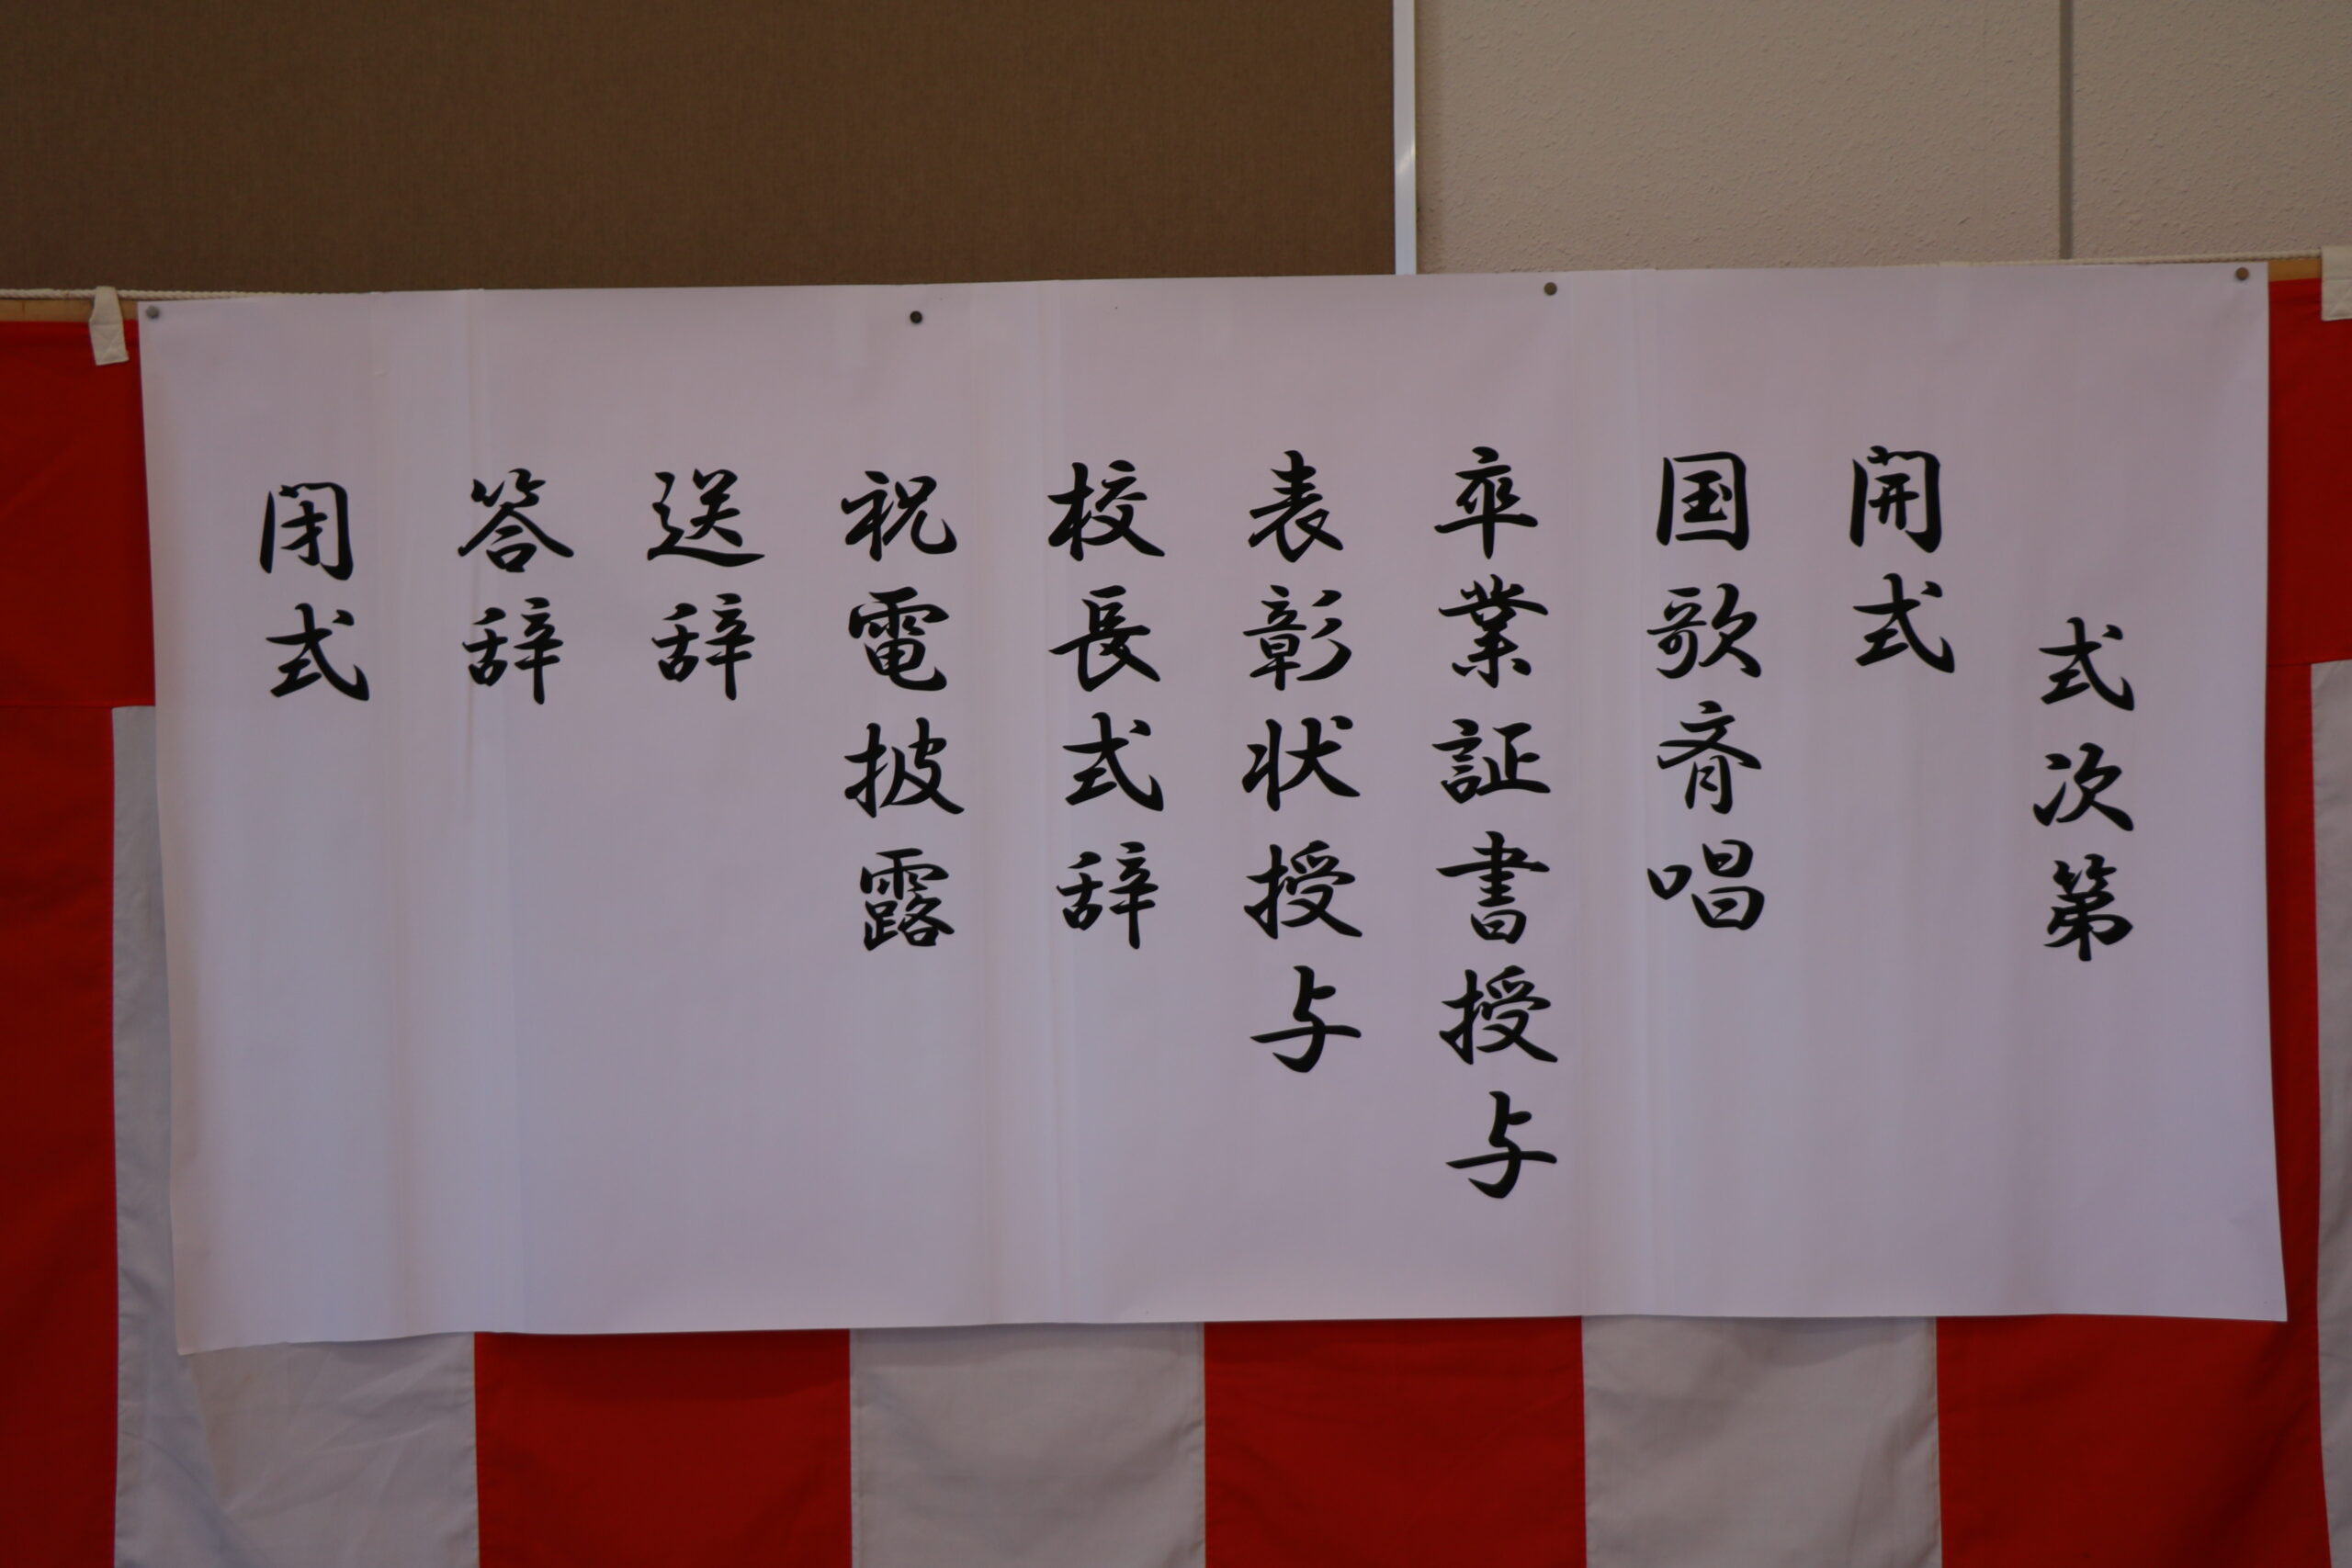 式次第
開式
国歌斉唱
卒業証書授与
表彰状授与
校長式辞
祝電披露
送辞
答辞
閉式